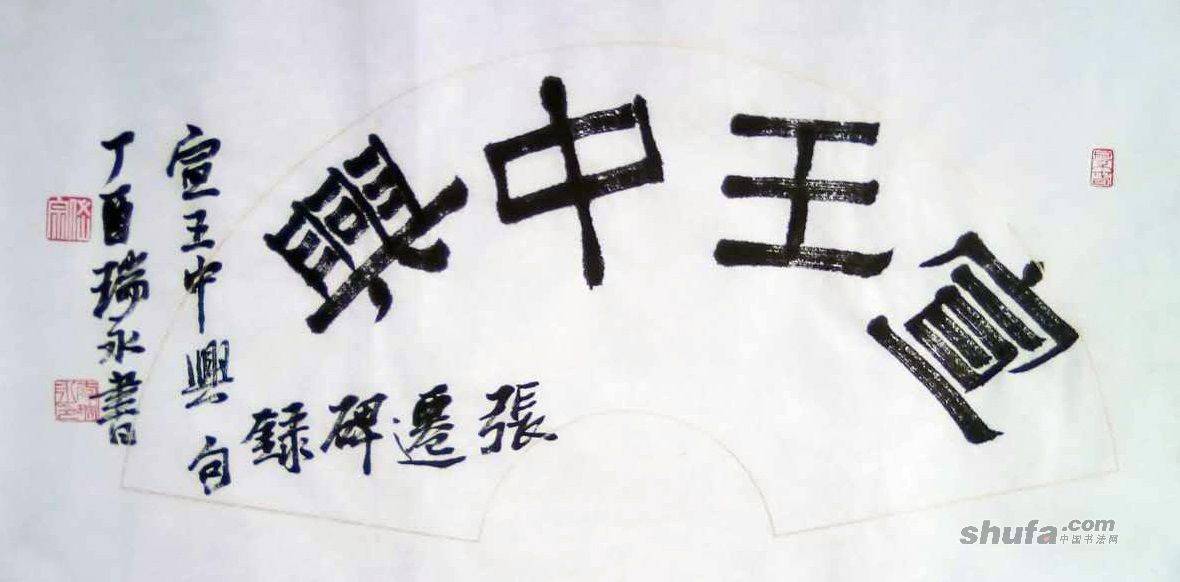 宣王中興
張遷碑録
宣王中興句
丁酉瑞永書
shufa.com
中国书法网